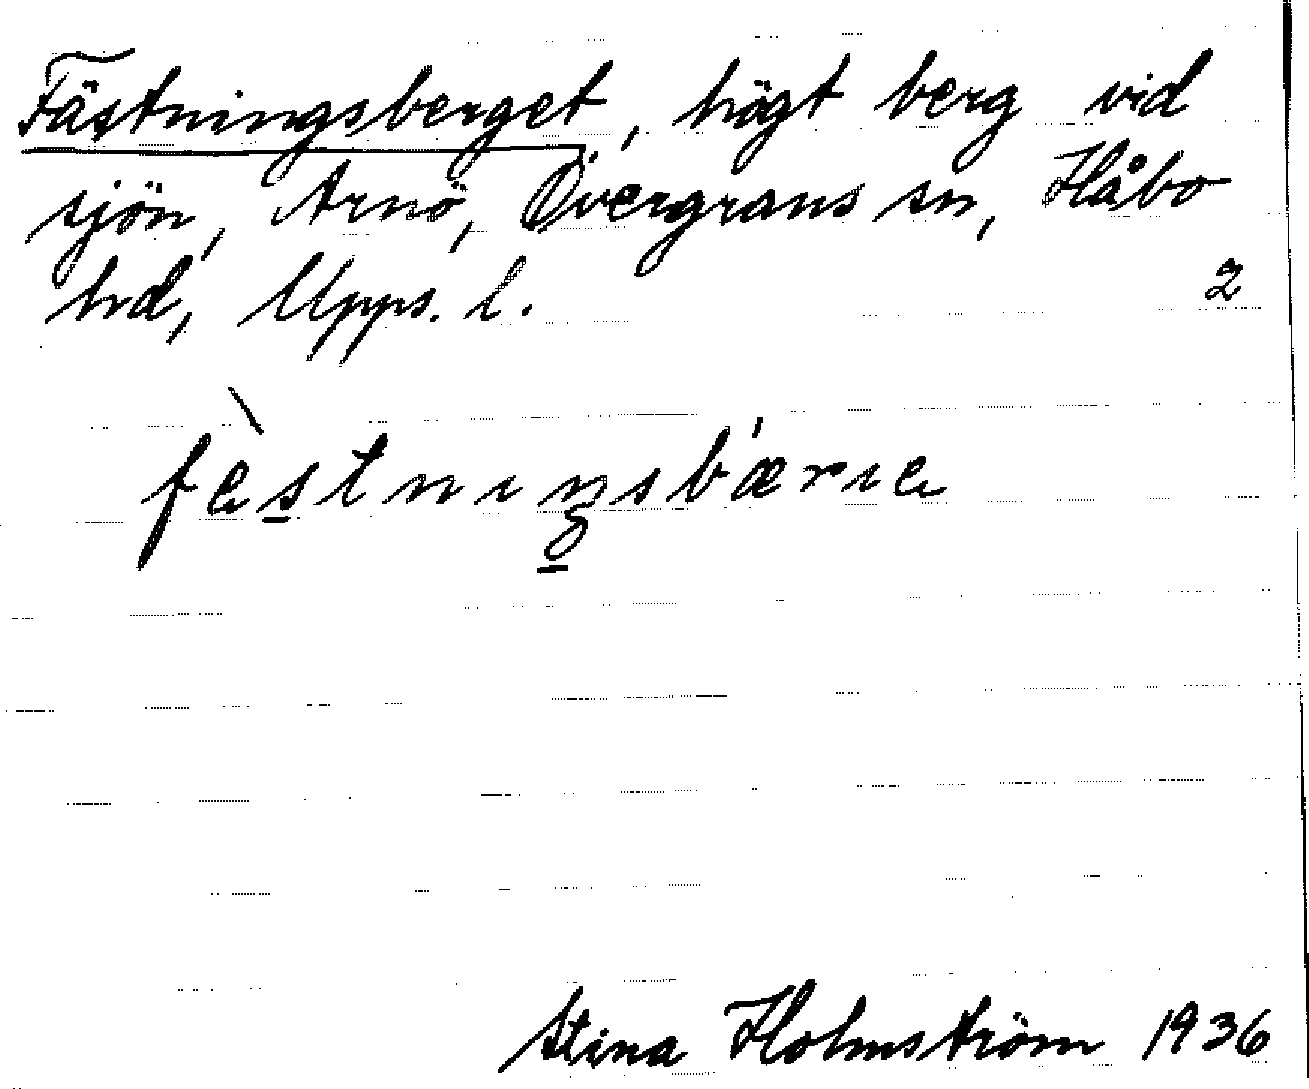 Fästningsberget, högt berg vid
sjön, Arnö, Övergrans sn, Håbo
hd, Upps. l. 2
fèstnıŋsbærıe
Stina Holmström 1936